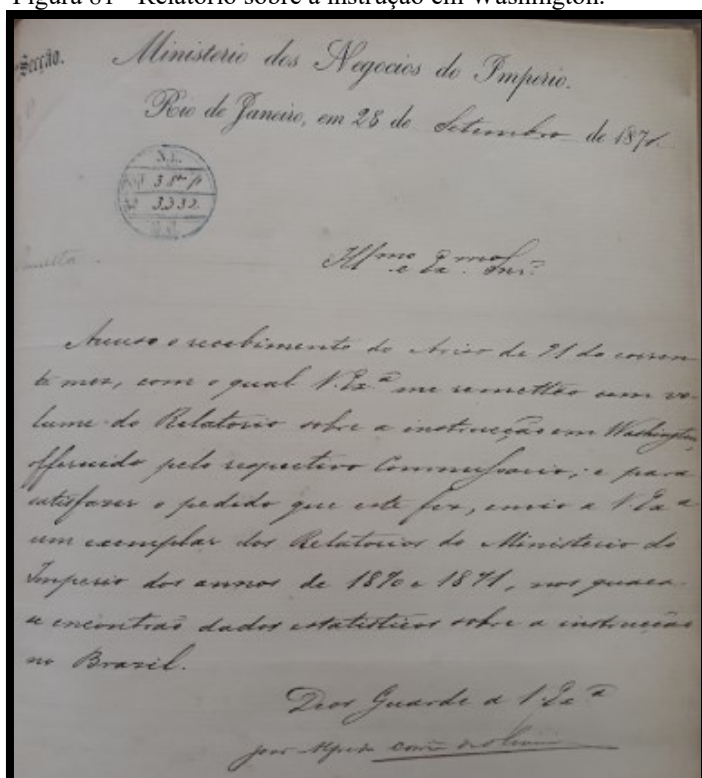 Figura 81 - Relatório sobre a instrução em Washington.
Secção.
Ministerio dos Negocios do Imperio.
Rio de Janeiro, em 28 de Setembro de 1871.
3332
Illmo e Exmo Snr.
Accuso o recebimento do Aviso de 21 do corren
te mez, com o qual V. Exª me remetteo um vo
lume do Relatorio sobre a instrucção em Washington,
offerecido pelo respectivo Commissario; e para
satisfazer o pedido que este fez, envio a V. Exª
um exemplar dos Relatorios do Ministerio do
Imperio dos annos de 1870 e 1871, nos quaes
se encontrão dados estatisticos sobre a instrucção
no Brazil.
Deos Guarde a V. Exª
João Alfredo Corrêa de Oliveira